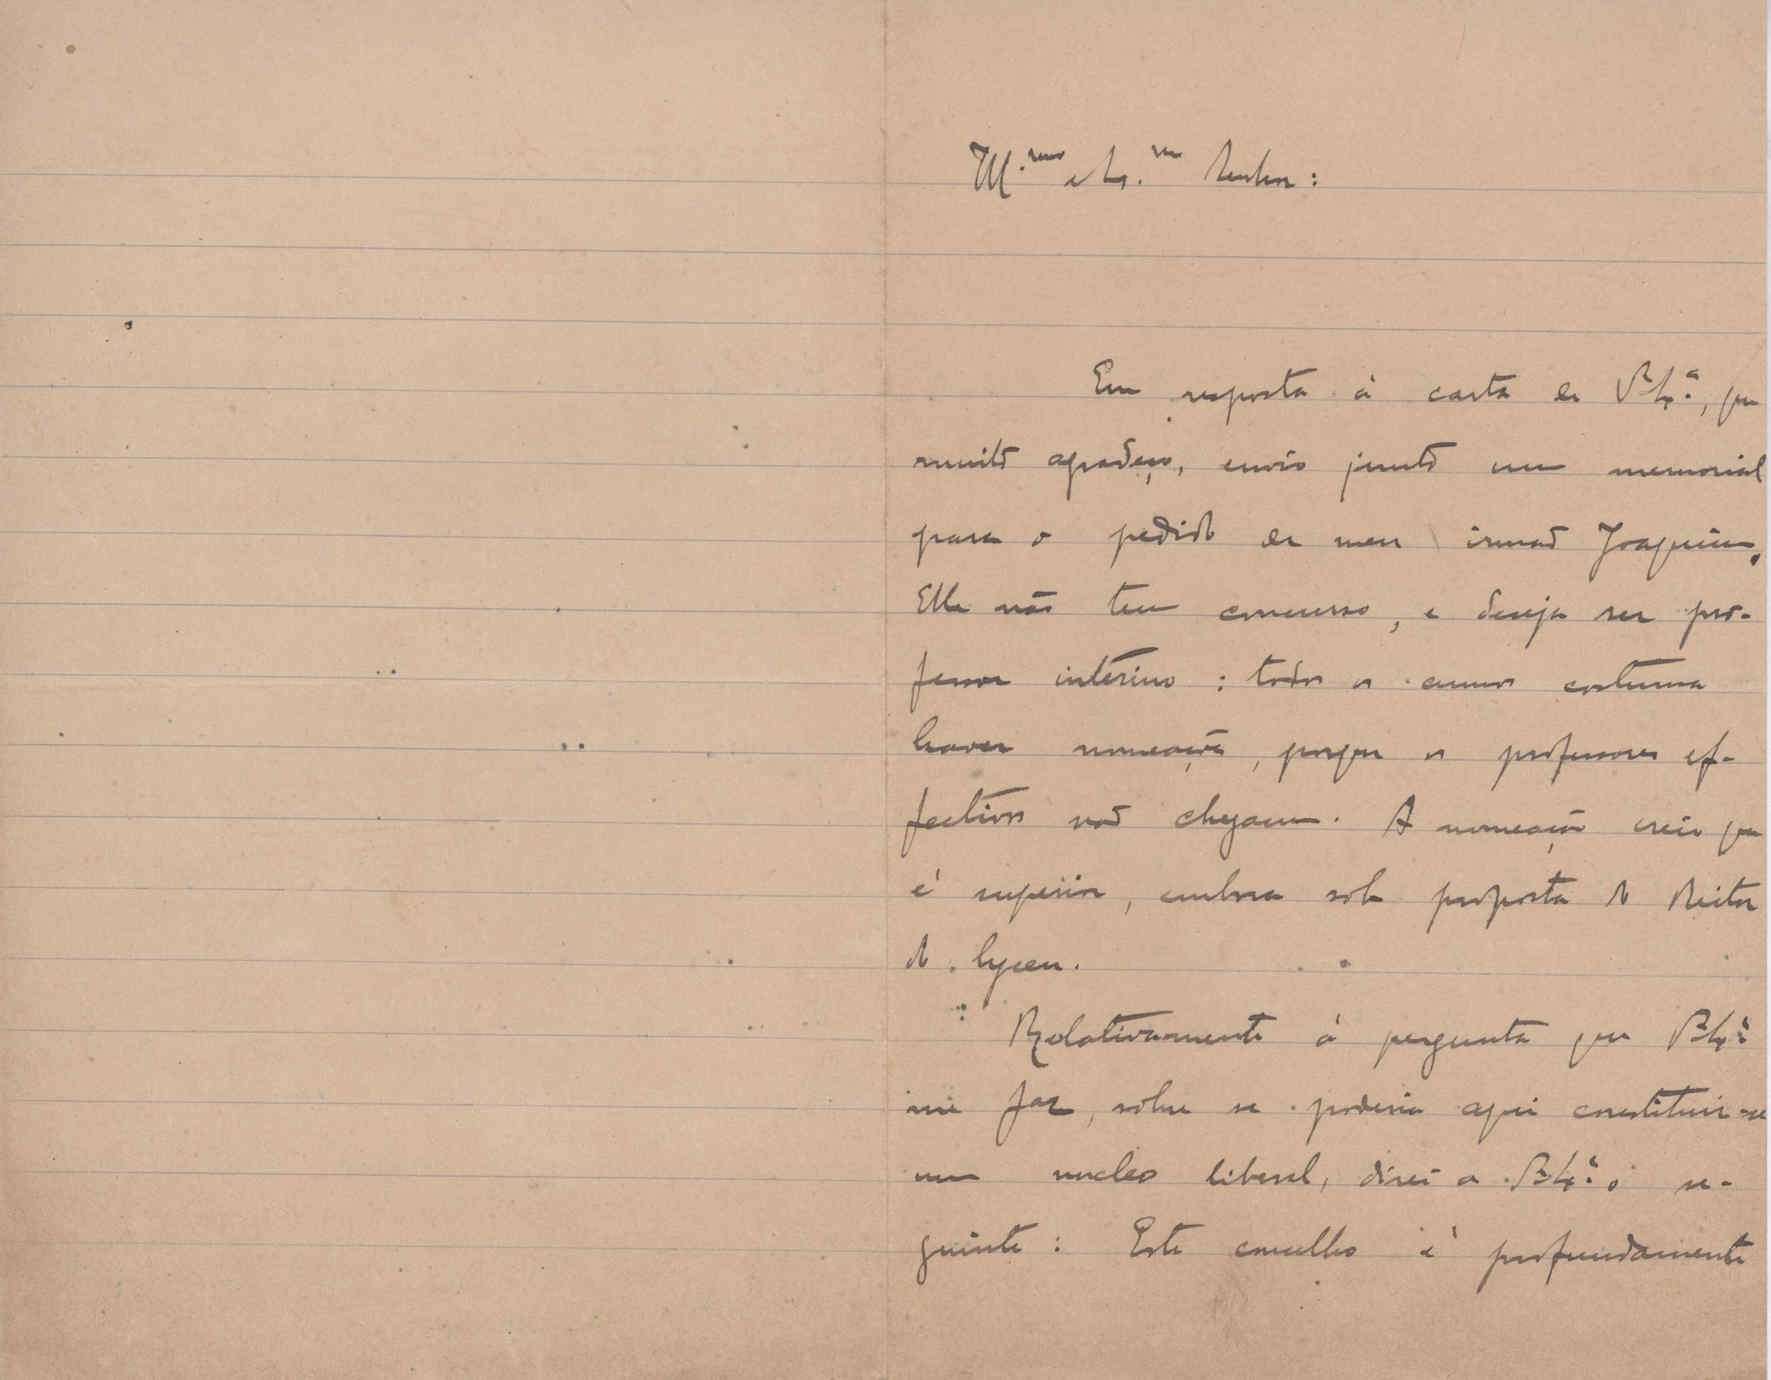 Ill.mo e Ex.mo Senhor:
Em resposta á carta de V. Ex.ª, que
muito agradeço, envio junto um memorial
para o pedido de meu irmão Joaquim.
Elle não tem concurso, e deseja ser pro-
fessor interino: todos os annos costuma
haver nomeação, porque os professores ef-
fectivos não chegam. A nomeação creio que
é superior, embora sob proposta do Reitor
do lyceu.
Relativamente á pergunta que V. Ex.ª
me faz, sobre se poderia aqui constituir-se
um nucleo liberal, direi a V. Ex.ª o se-
guinte: Este concelho é profundamente